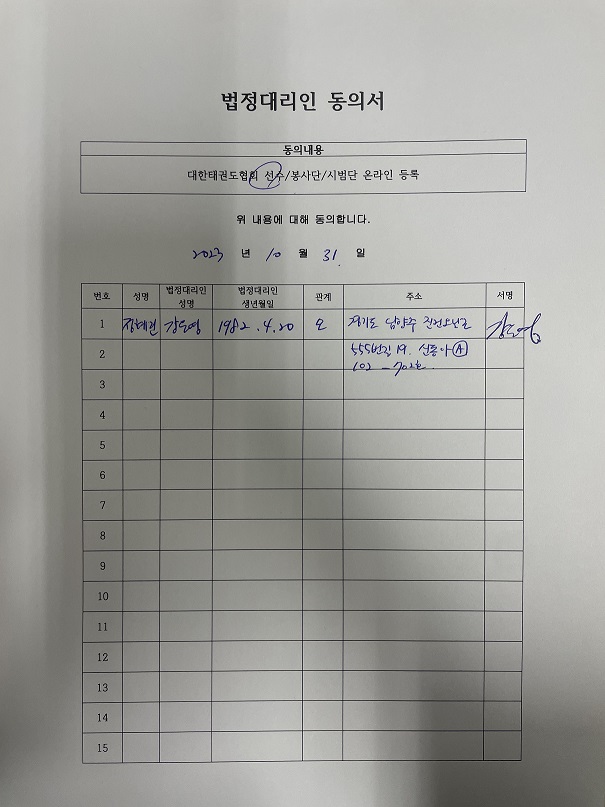 법정대리인 동의서
동의내용
대한태권도협회 선수/봉사단/시범단 온라인 등록
위 내용에 대해 동의합니다.
2023 년 10 월 31. 일
번호 성명 법정대리인 성명 법정대리인 생년월일 관계 주소 서명
1 강도영 1982.4.20 모 경기도 남양주
2 555번길 19. 신동아 A
3 102 - 702호.
4
5
6
7
8
9
10
11
12
13
14
15